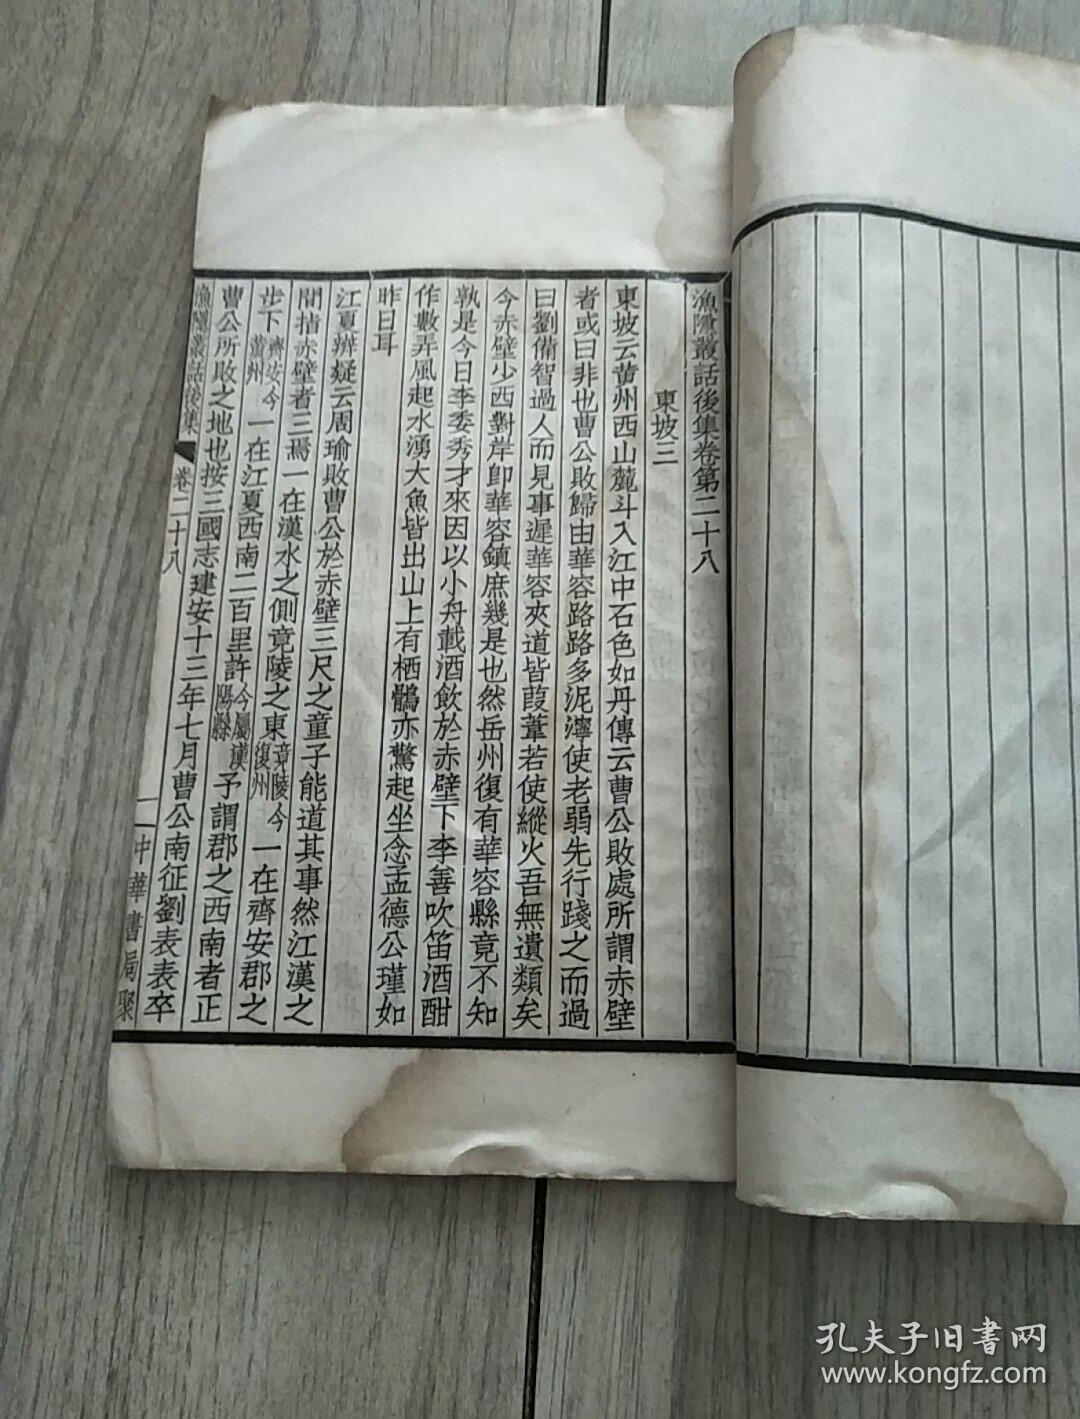 漁隱叢話後集卷第二十八
東坡三
東坡云黄州西山麓斗入江中石色如丹傳云曹公敗處所謂赤壁
者或曰非也曹公敗歸由華容路路多泥濘使老弱先行踐之而過
曰劉備智過人而見事遲華容夾道皆葭葦若使縱火吾無遺類矣
今赤壁少西對岸卽華容鎮庶幾是也然岳州復有華容縣竟不知
孰是今日李委秀才來因以小舟載酒飲於赤壁下李善吹笛酒酣
作數弄風起水湧大魚皆出山上有栖鶻亦驚起坐念孟德公瑾如
昨日耳
江夏辨疑云周瑜敗曹公於赤壁三尺之童子能道其事然江漢之
間指赤壁者三焉一在漢水之側竟陵之東竟陵今復州一在齊安郡之
步下齊安今黄州一在江夏西南二百里許今屬漢陽縣予謂郡之西南者正
曹公所敗之地也按三國志建安十三年七月曹公南征劉表表卒
漁隱叢話後集 卷二十八 一 中華書局聚
孔夫子旧書网
www.kongfz.com